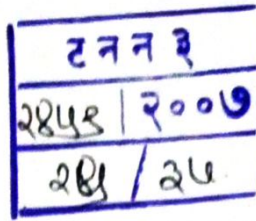 ट न न ३
२४५९ | २००७
२७ / ३५